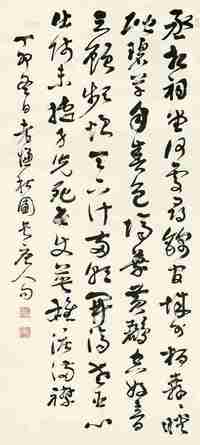 丞相祠堂何處尋錦官城外柏森々映
階碧草自春色隔葉黃鸝空好音
三顧頻煩天下計兩朝開濟老臣心
出師未捷身先死長使英雄淚滿襟
丁卯冬日書唐人句